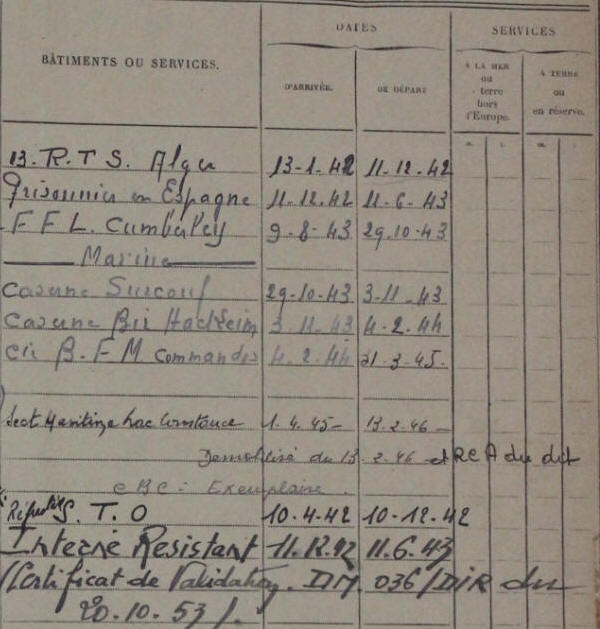 DATES SERVICES
BÂTIMENTS OU SERVICES. D'ARRIVÉE. DE DÉPART
A LA MER ou terre hors d'Europe.
A TERRE ou en réserve.
13. R. T S. Alger 13-1-42 11-12-42
Prisonnier en Espagne 11.12.42 11-6-43
F F L. Camberley 9-8-43 29.10-43
Marine
Caserne Surcouf 29-10-43 3-11-43
Caserne Bir Hackeim 3-11-43 4-2-44
Cie B. F M Commandos 4-2-44 31-3-45.
Sect. Maritime Lac Constance 1.4.45- 13-2-46-
Démobilisé du 13-2-46 et RCA du dit
CBC: Exemplaire.
S. T. O 10-4-42 10-12-42
Interné Résistant 11.12.42 11.6.43
(Certificat de Validation. DM. 036/DIR du
20.10.53).